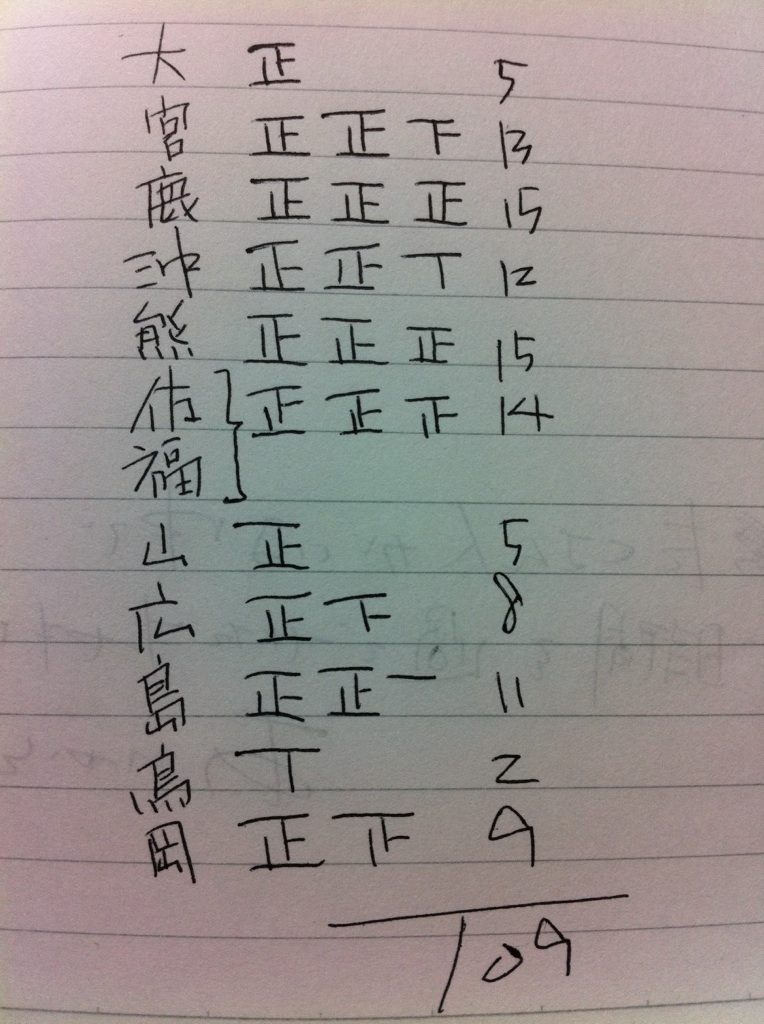 大 正 5
宮 正 正 下 13
鹿 正 正 正 15
沖 正 正 丅 12
熊 正 正 正 15
佐 正 正 𤴓 14
福
山 正 5
広 正 下 8
島 正 正 一 11
鳥 丅 2
岡 正 𤴓 9
109